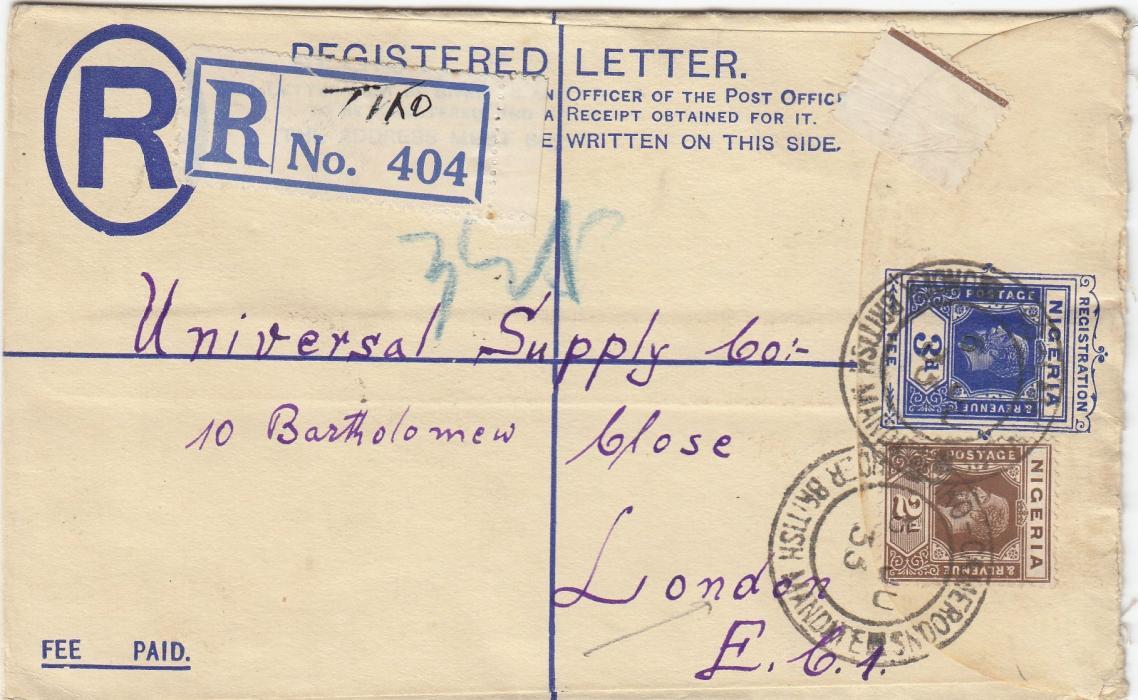 R
REGISTERED LETTER.
OFFICER OF THE POST OFFICE
A RECEIPT OBTAINED FOR IT.
BE WRITTEN ON THIS SIDE.
R TIKO
No. 404
Universal Supply Co:-
10 Bartholomew Close
London
E.C.1.
FEE PAID.
REGISTRATION FEE
NIGERIA
POSTAGE & REVENUE
3d
NIGERIA
POSTAGE & REVENUE
2d
UNDER BRITISH MANDATE
CAMEROONS
33